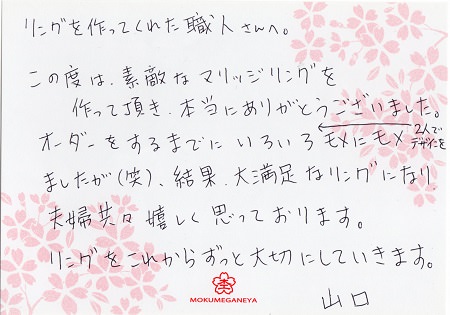 リングを作ってくれた職人さんへ。
この度は、素敵なマリッジリングを
作って頂き、本当にありがとうございました。
オーダーをするまでにいろいろモメにモメ
2人で
デザインを
ましたが(笑)、結果、大満足なリングになり
夫婦共々嬉しく思っております。
リングをこれからずっと大切にしていきます。
MOKUMEGANEYA
山口